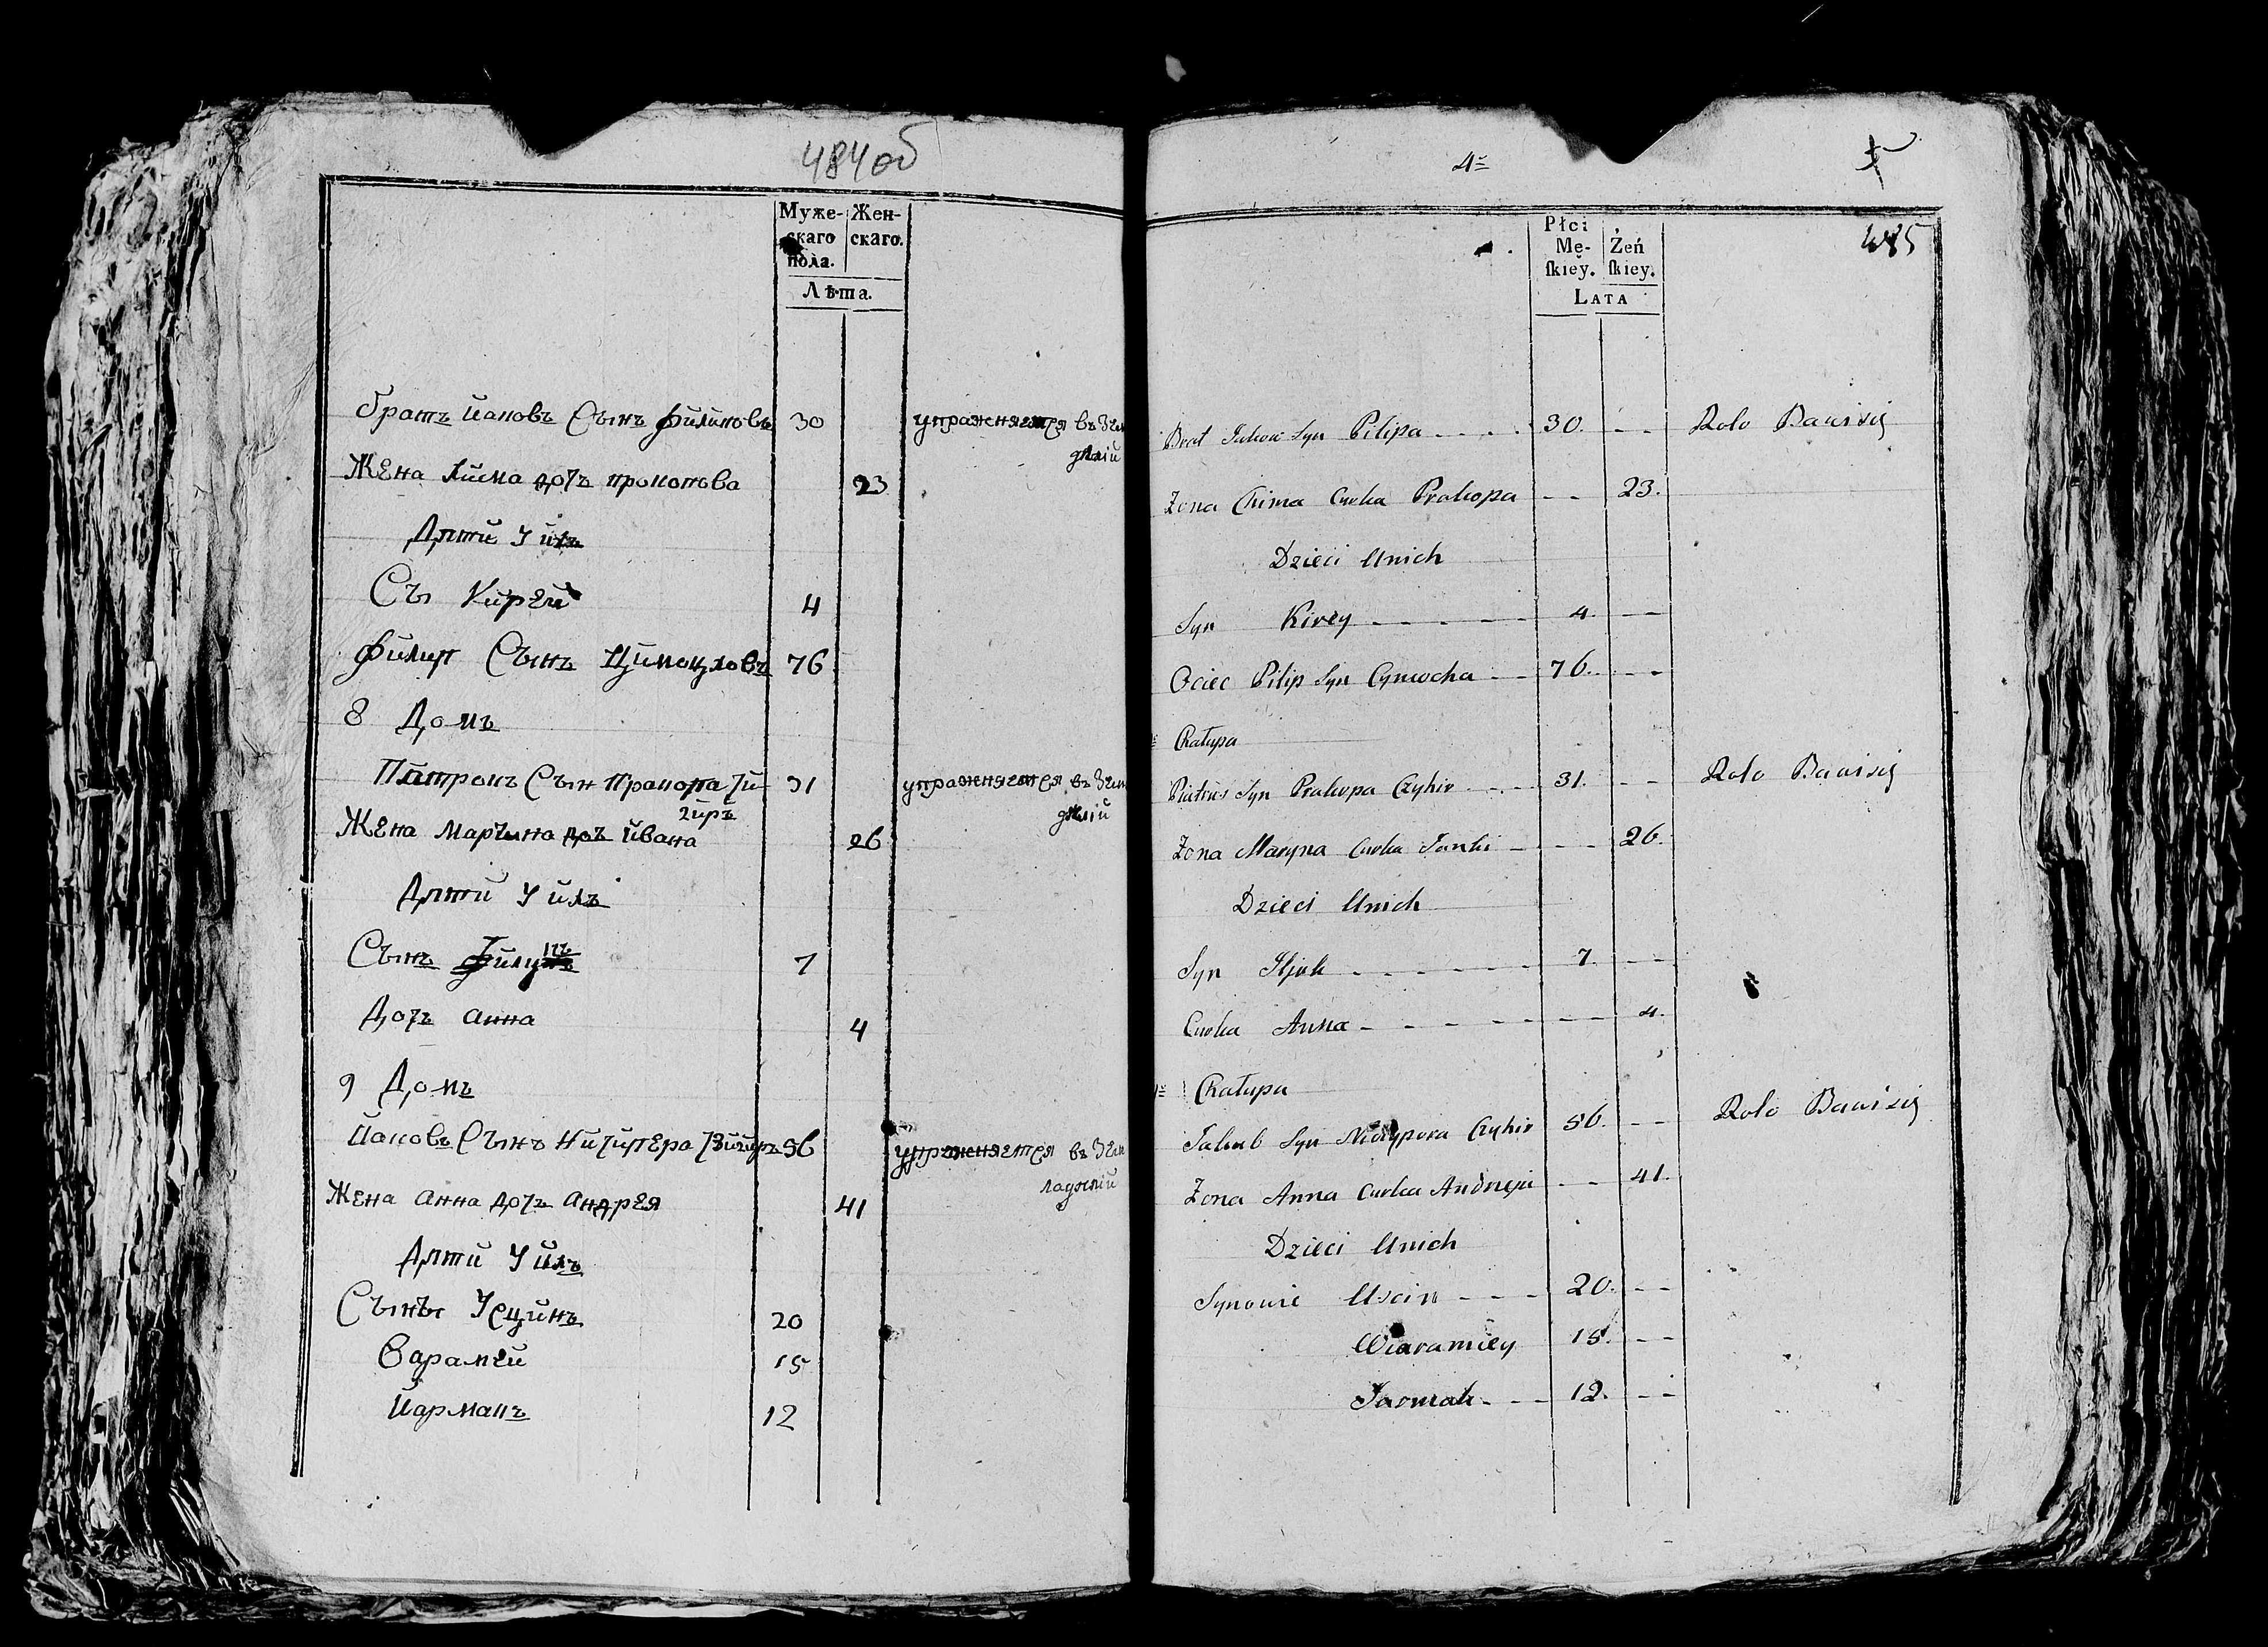 484об
Муже- Жен-
скаго скаго.
пола.
Лѣта.
братъ Йаковъ Сынъ филиповъ 30 упражняетея въ Зем
дѣлій
Жена Хима дочъ прокопова 23
Дѣти У ихъ
Съ Кирей 4
филип Сынъ Цимоховъ 76
8 Домъ
Пiатрокъ Сын Пракопа Чи 31 упражняетея въ Зем
гиръ дѣлій
Жена Марына доч Йвана 26
Дѣти У йхъ
Сынъ 7
Дочъ Анна 4
9 Домъ
Йаковъ Сынъ Ничипера Чигиръ 56 упражняетея въ Зем
Жена Анна дочъ Андрея 41
Дѣти У йхъ
Сыны Усцинъ 20
Варамей 15
Йармакъ 12
4º
485
Płci
Mę- Żeń
ſkiey. ſkiey.
LATA
Brat Jakow Syn Pilipa 30. - - Rolo Bawi się
Zona Chima Curka Prakopa - - 23.
Dzieci Unich
Syn Kirey 4. - -
Ociec Pilip Syn Cymocha 76. - -
Chałupa
Piatrus Syn Prakopa Czyhir 31. - - Rolo Bawi się
Zona Maryna Curka Janki - - 26.
Dzieci Unich
Syn Iljuk 7. - -
Curka Anna - - 4.
Chałupa
Jakub Syn Niczypora Czyhir 56. - - Rolo Bawi się
Zona Anna Curka Andreja - - 41.
Dzieci Unich
Synowie Uscin 20. - -
Wiaramiey 15. - -
Jarmak 12. - -